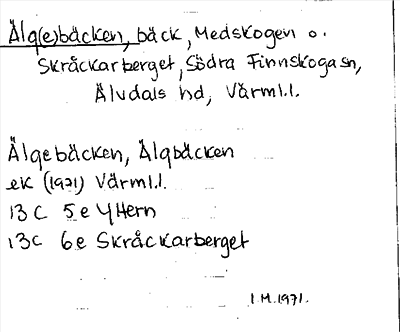 Älg(e)bäcken, bäck, Medskogen o.
Skråckarberget, Södra Finnskoga sn,
Älvdals hd, Värml.l.
Älgebäcken, Älgbäcken
ek (1971) Värml.l.
13 C 5 e Yttern
13c 6e Skråckarberget
I.M.1971.